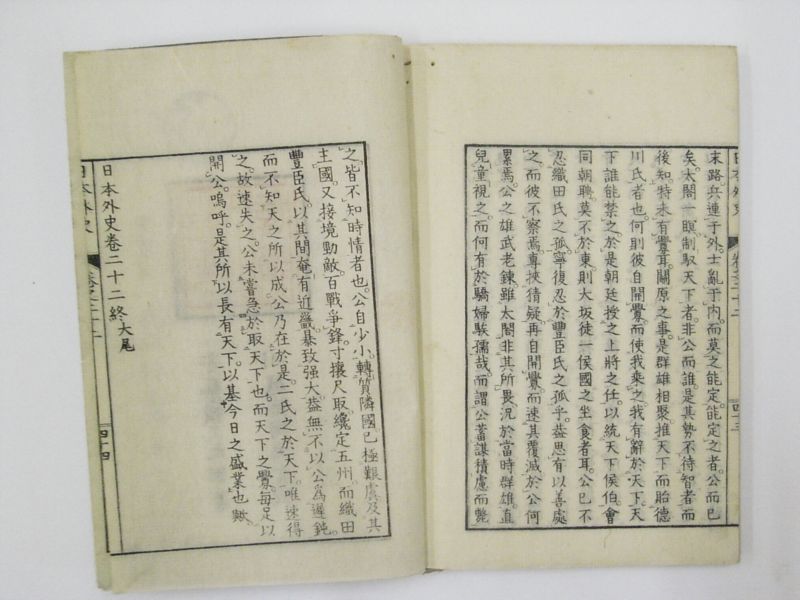 末路兵連于外。士亂于内。而莫之能定。能定之者。公而已
矣。太閤一瞑。制馭天下者。非公而誰。是其勢不待智者而
後知。特未有釁耳。關原之事。是群雄相聚。推天下而貽德
川氏者也。何則彼自開釁。而使我乘之。我有辭於天下。天
下誰能禁之。於是朝廷授之上將之任。以統天下侯伯。會
同朝聘。莫不於東。則大坂徒一侯國之坐食者耳。公已不
忍織田氏之孤。寧復忍於豐臣氏之孤乎。益思有以善處
之。而彼不察焉。專挾猜疑。再自開釁。而速其覆滅。於公何
累焉。公之雄武老鍊。雖太閤非其所畏。況於當時群雄。直
兒童視之。而何有於驕婦騃孺哉。而謂公蓄謀積慮而斃
日本外史
四十三
之。皆不知時情者也。公自少小。轉質隣國。已極艱虞。及其
主國。又接境勁敵。百戰爭鋒。寸攘尺取。纔定五州。而織田
豐臣氏。以其間奄有近畿。暴致强大。益無不以公爲遲鈍。
而不知天之所以成公。乃在於是。二氏之於天下。唯速得
之。故速失之。公未嘗急於取天下也。而天下之釁。每足以
開公。嗚呼。是其所以長有天下。以基今日之盛業也歟。
日本外史卷二十二終 大尾
日本外史
卷之二十二
四十四